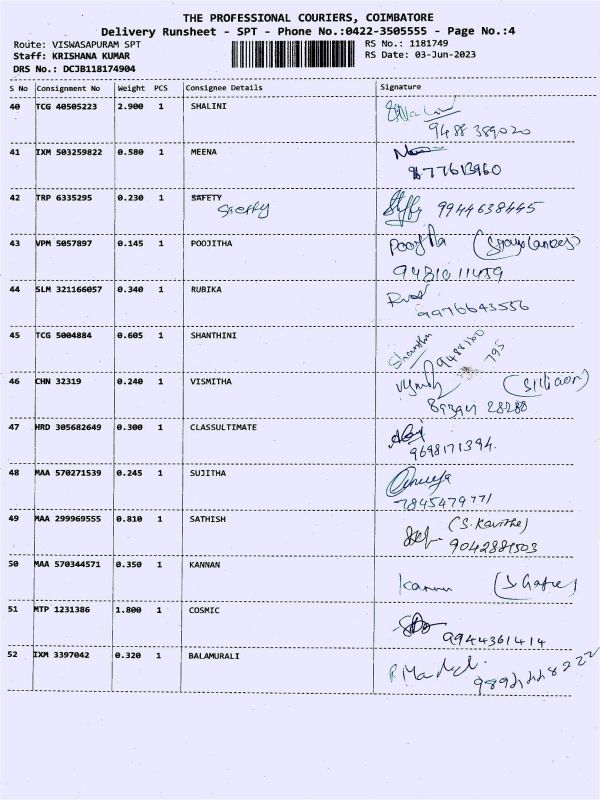 THE PROFESSIONAL COURIERS, COIMBATORE
Delivery Runsheet - SPT - Phone No.:0422-3505555 - Page No.:4
Route: VISWASAPURAM SPT
RS No.: 1181749
Staff: KRISHANA KUMAR
RS Date: 03-Jun-2023
DRS No.: DCJB118174904
S No Consignment No Weight PCS Consignee Details Signature
40 TCG 40505223 2.900 1 SHALINI
9488389020
41 IXM 503259822 0.580 1 MEENA
9877613960
42 TRP 6335295 0.230 1 SAFETY
9944638445
43 VPM 5057897 0.145 1 POOJITHA
9481011459
44 SLM 321166057 0.340 1 RUBIKA
9976643556
45 TCG 5004884 0.605 1 SHANTHINI
Shanthi 9488160
795
46 CHN 32319 0.240 1 VISMITHA
28288
47 HRD 305682649 0.300 1 CLASSULTIMATE
9698171394
48 MAA 570271539 0.245 1 SUJITHA
7845479771
49 MAA 299969555 0.810 1 SATHISH
(S. Kavitha)
9042881503
50 MAA 570344571 0.350 1 KANNAN
Kannan
51 MTP 1231386 1.800 1 COSMIC
9944361414
52 IXM 3397042 0.320 1 BALAMURALI